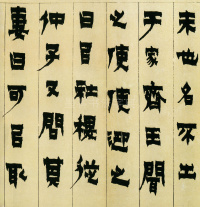 末世名不出
于家齊王聞
之使使迎之
曰㠯社稷從
仲子又問其
妻曰可㠯取